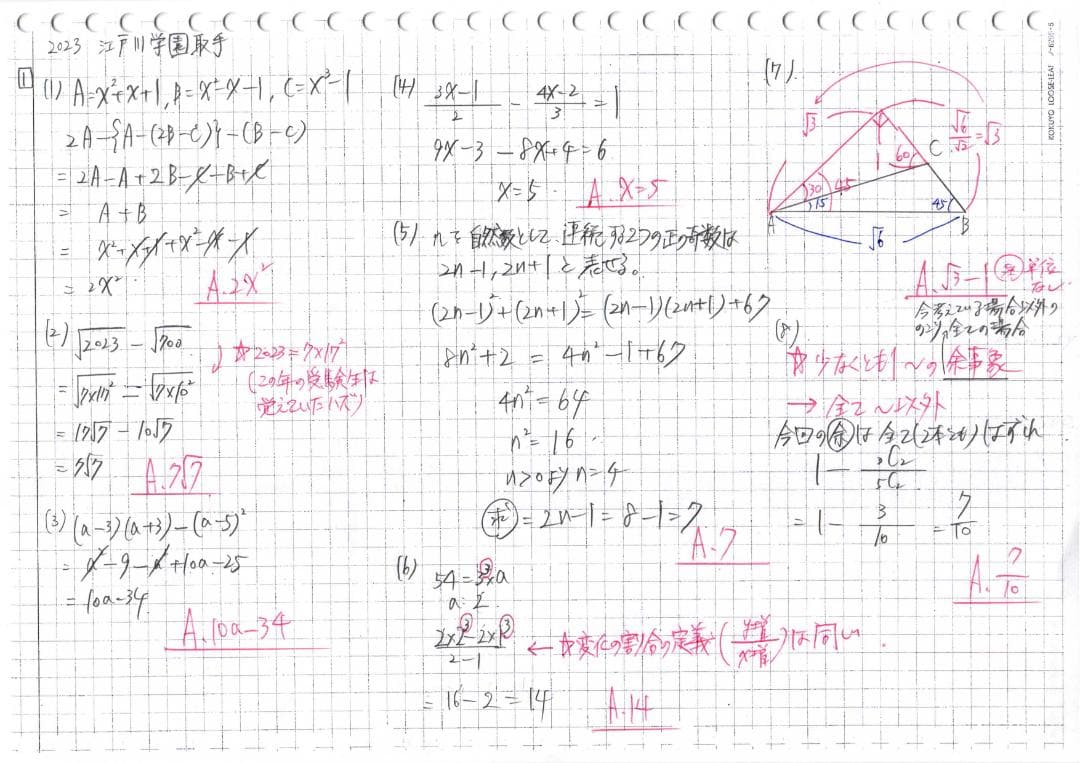 2023 江戸川学園取手
1
(1) A=x²+x+1, B=x²-x-1, C=x³-1
2A-{A-(2B-C)}-(B-C)
=2A-A+2B-C-B+C
= A+B
= x²+x+1+x²-x-1
= 2x²
A. 2x²
(2) √2023 - √700
=√7×17² - √7×10²
=17√7 - 10√7
=7√7
A. 7√7
☆2023=7×17²
(この年の受験生は
覚えていたハズ)
(3) (a-3)(a+3)-(a-5)²
= a²-9-a²+10a-25
=10a-34
A. 10a-34
(4) 3x-1/2 - 4x-2/3 =1
9x-3-8x+4=6
x=5.
A. x=5
(5) nを自然数として、連続する2つの正の奇数は
2n-1, 2n+1と表せる。
(2n-1)²+(2n+1)²=(2n-1)(2n+1)+67
8n²+2 = 4n²-1+67
4n²=64
n²=16.
n>0よりn=4
求=2n-1=8-1=7
A. 7
(6) 54=3³×a
a=2
2×2³-2×1³/2-1
← ☆変化の割合の定義(yの増/xの増)は同じ.
=16-2=14
A. 14
(7).
√3
√6/√2=√3
60
C
30
45
15
45
A
B
√6
A. √3-1
単位
なし
今考えている場合以外の
のこり全ての場合
(8)
☆少なくとも1〜の余事象
→全て〜以外
今回の余は全て(2本とも)はずれ
1- ₃C₂/₅C₂
=1- 3/10 = 7/10
A. 7/10
KOKUYO LOOSE-LEAF